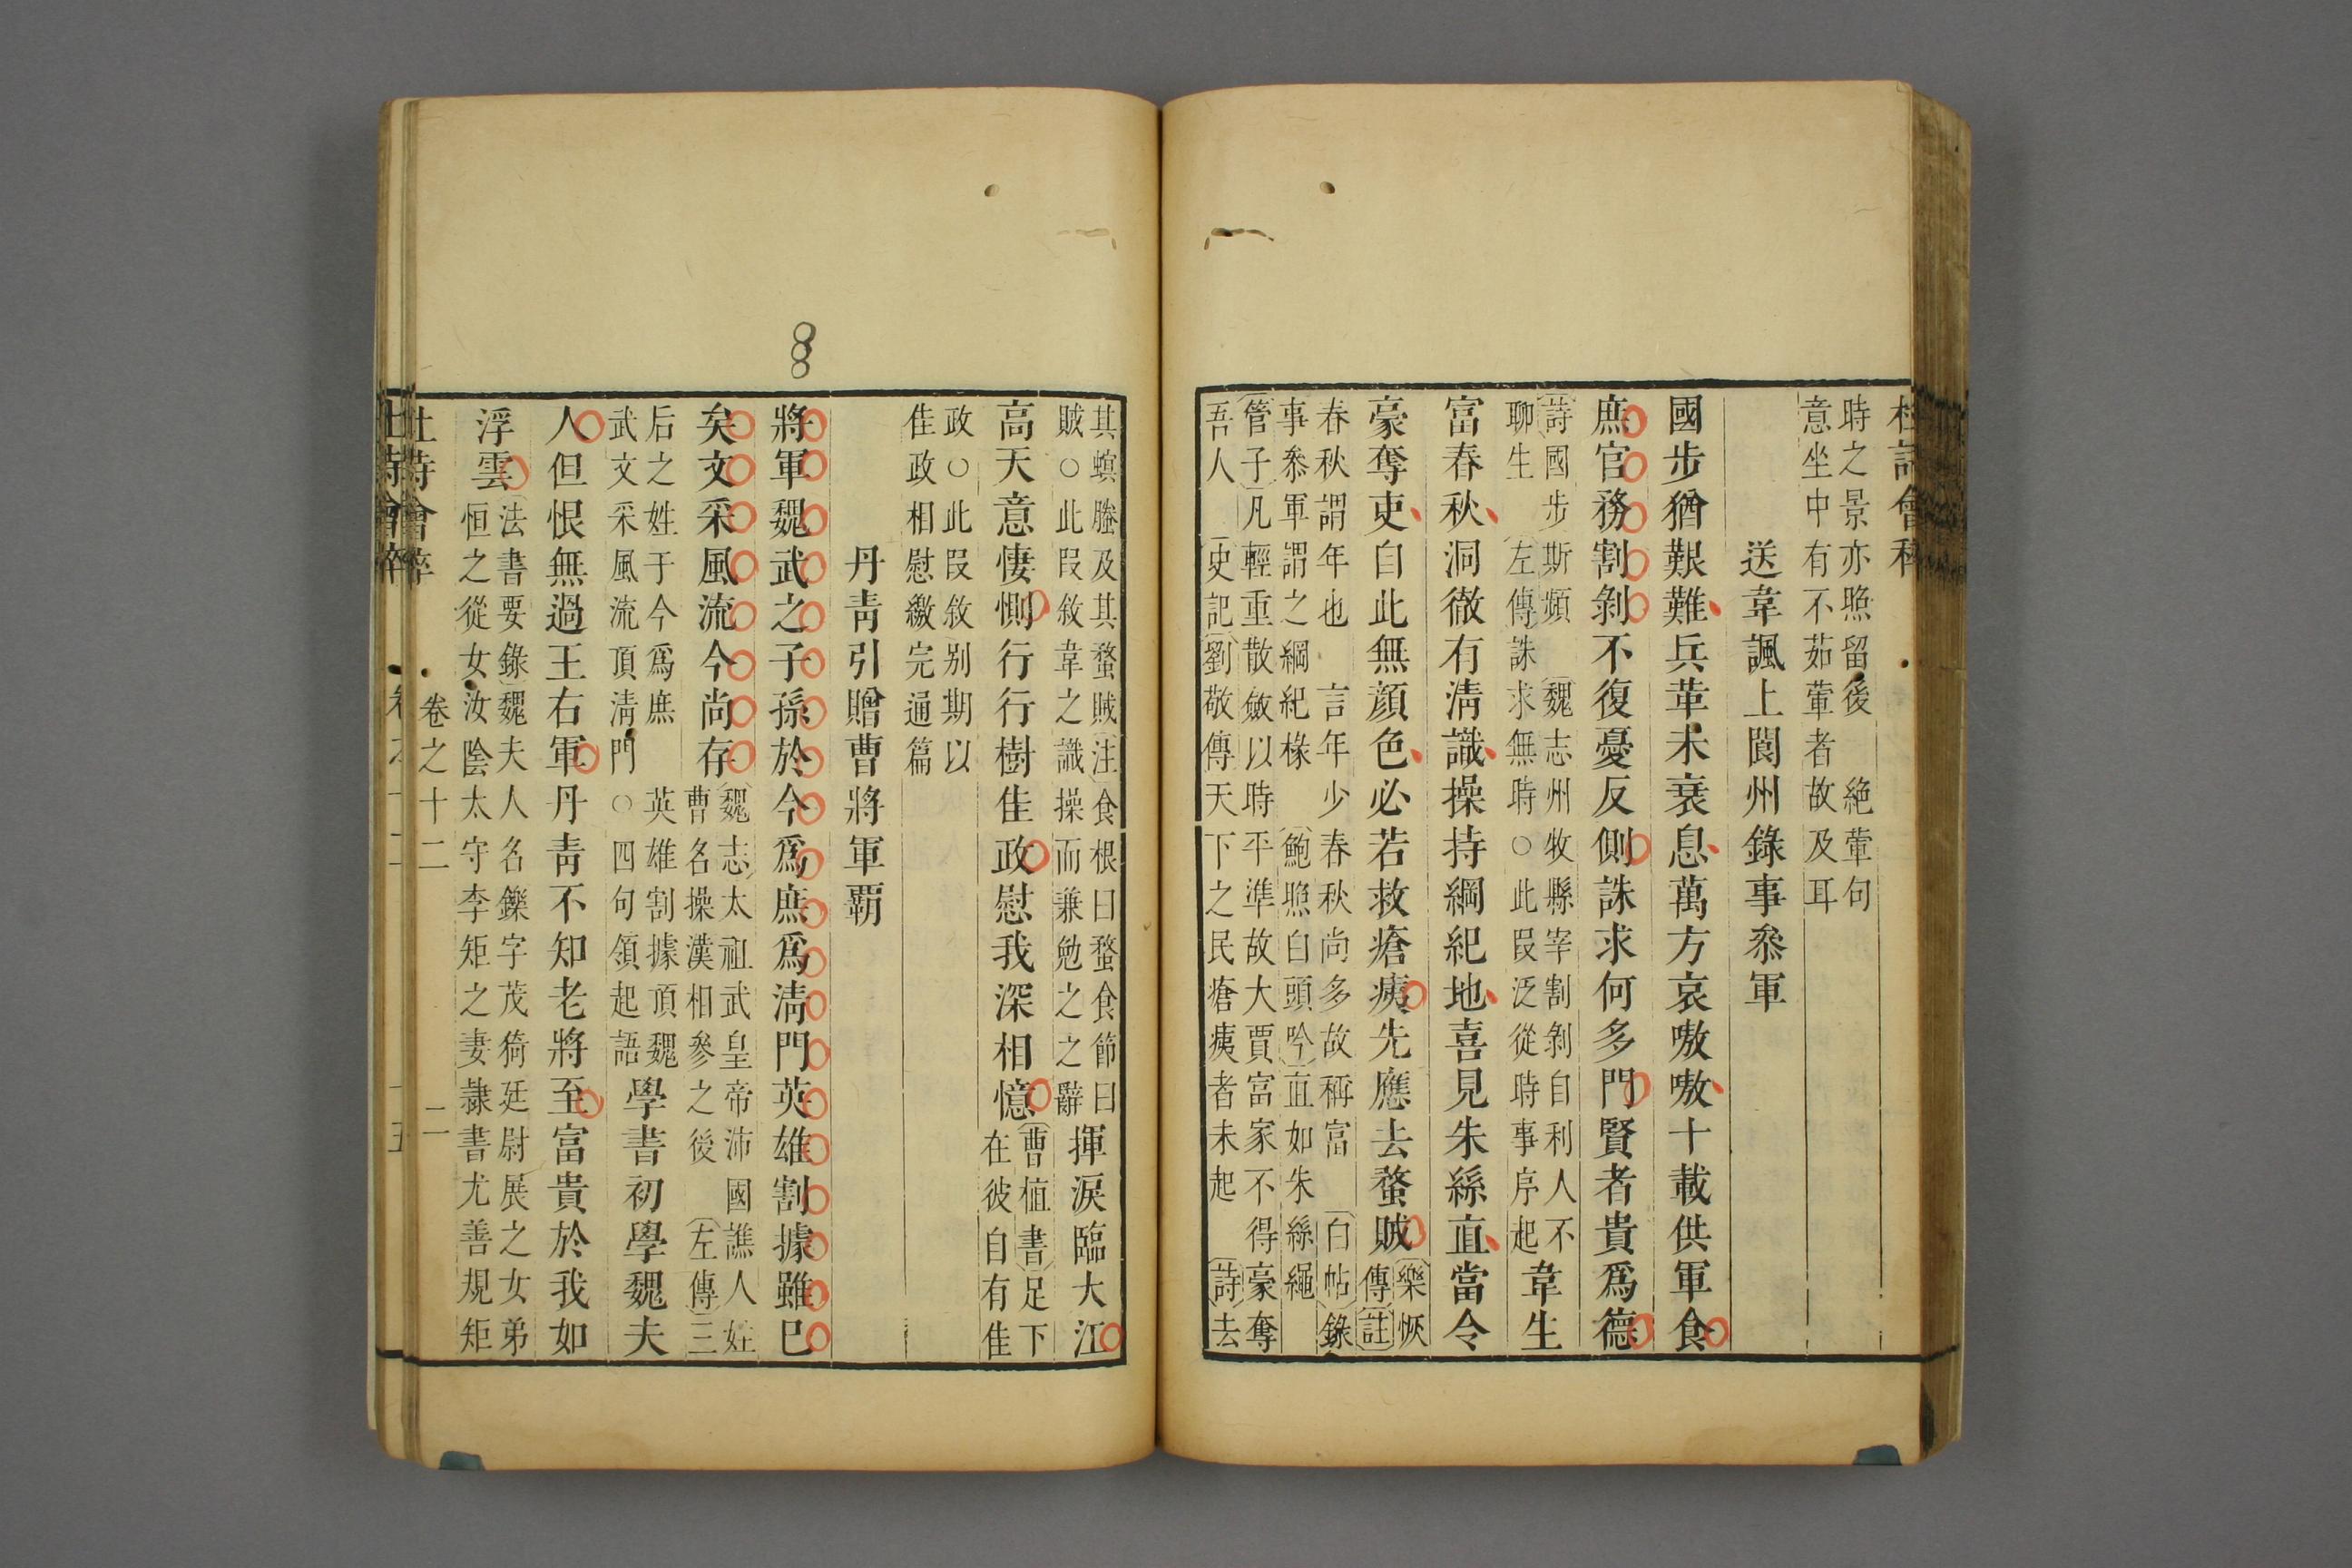 杜詩會稡
時之景亦煦留後　絶葷句
意坐中有不茹葷者故及耳
送韋諷上閬州錄事叅軍
國步猶艱難兵革未衰息萬方哀嗷嗷十載供軍食
庶官務割剝不復憂反側誅求何多門賢者貴爲德
詩國步斯頻　魏志州牧縣宰割剝自利人不
聊生　左傳誅求無時○此叚泛從時事序起
韋生
富春秋洞徹有淸識操持綱紀地喜見朱絲直當令
豪奪吏自此無顔色必若救瘡痍先應去蝥賊
樂恢
傳註
春秋謂年也　言年少春秋尚多故稱富　白帖錄
事叅軍謂之綱紀椽　鮑照白頭吟直如朱絲繩
管子凡輕重散斂以時平準故大賈富家不得豪奪
吾人　史記劉敬傳天下之民瘡痍者未起　詩去
其螟螣及其蝥賊注食根曰蝥食節曰
賊○此叚敘韋之識操而兼勉之之辭
揮淚臨大江
高天意悽惻行行樹佳政慰我深相憶
曹植書足下
在彼自有佳
政○此叚敘别期以
佳政相慰繳完通篇
丹靑引贈曹將軍覇
將軍魏武之子孫於今爲庶爲淸門英雄割據雖巳
矣文采風流今尚存
魏志太祖武皇帝沛國譙人姓
曹名操漢相參之後　左傳三
后之姓于今爲庶　英雄割據頂魏
武文采風流頂淸門○四句領起語
學書初學魏夫
人但恨無過王右軍丹靑不知老將至富貴於我如
浮雲
法書要錄魏夫人名鑠字茂猗廷尉展之女弟
恒之從女汝陰太守李矩之妻隷書尤善規矩
杜詩會稡
卷之十二
二